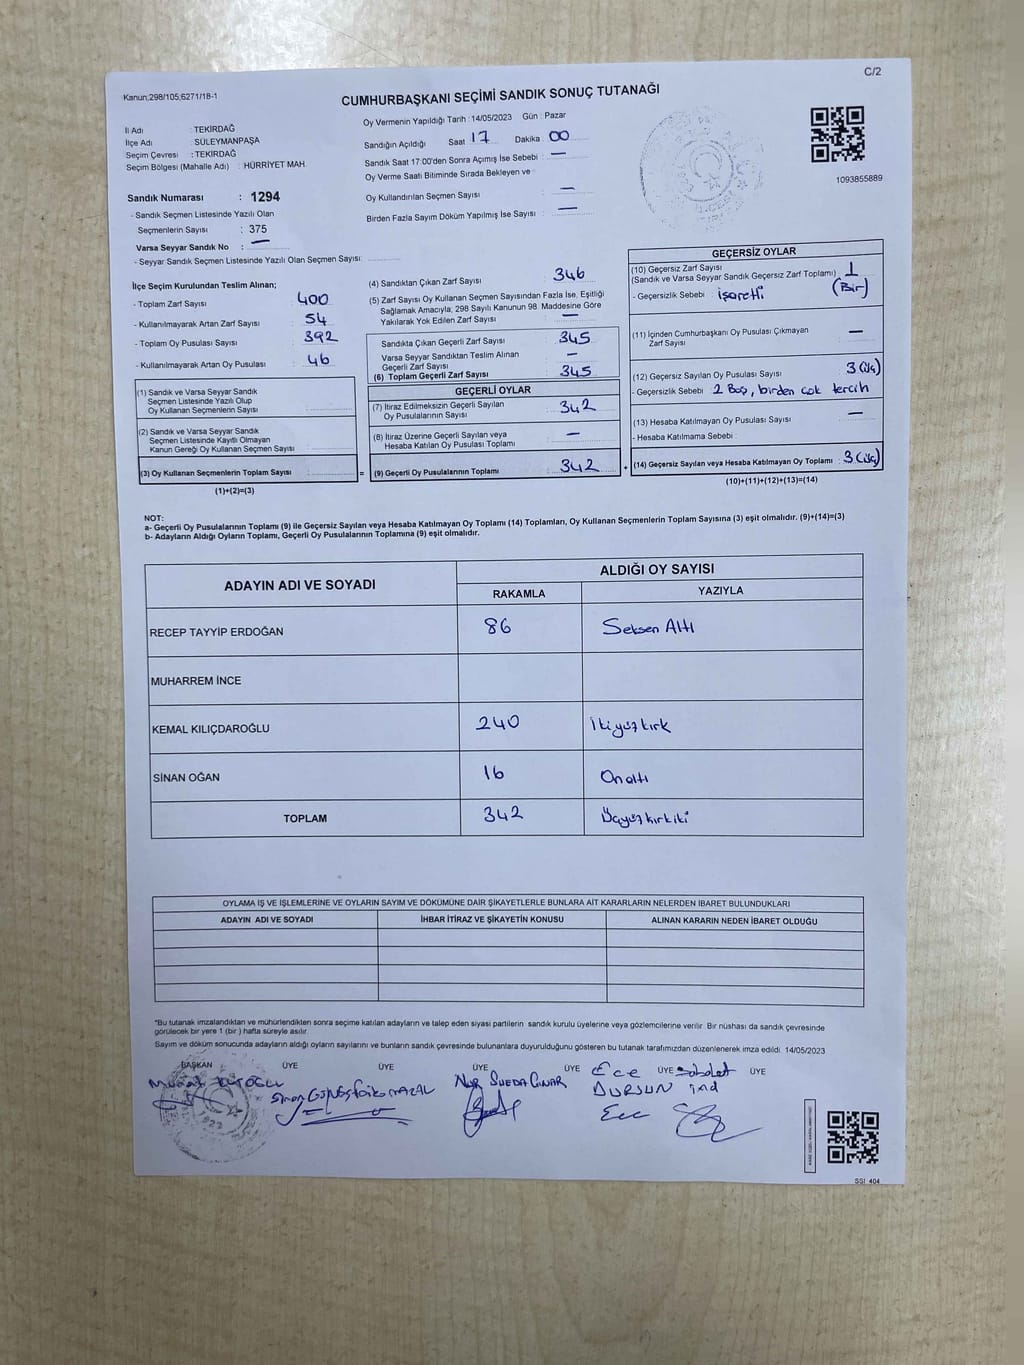 C/2
Kanun;298/105,6271/18-1
CUMHURBAŞKANI SEÇİMİ SANDIK SONUÇ TUTANAĞI
İl Adı : TEKİRDAĞ
İlçe Adı : SÜLEYMANPAŞA
Seçim Çevresi : TEKİRDAĞ
Seçim Bölgesi (Mahalle Adı) : HÜRRİYET MAH.
Sandık Numarası : 1294
- Sandık Seçmen Listesinde Yazılı Olan
Seçmenlerin Sayısı : 375
Varsa Seyyar Sandık No : —
- Seyyar Sandık Seçmen Listesinde Yazılı Olan Seçmen Sayısı:
Oy Vermenin Yapıldığı Tarih : 14/05/2023 Gün : Pazar
Sandığın Açıldığı Saat 17 Dakika 00
Sandık Saat 17:00'den Sonra Açımış İse Sebebi : —
Oy Verme Saati Bitiminde Sırada Bekleyen ve
Oy Kullandırılan Seçmen Sayısı : —
Birden Fazla Sayım Döküm Yapılmış İse Sayısı : —
1093855889
İlçe Seçim Kurulundan Teslim Alınan;
- Toplam Zarf Sayısı : 400
- Kullanılmayarak Artan Zarf Sayısı : 54
- Toplam Oy Pusulası Sayısı : 392
- Kullanılmayarak Artan Oy Pusulası : 46
(1) Sandık ve Varsa Seyyar Sandık
Seçmen Listesinde Yazılı Olup
Oy Kullanan Seçmenlerin Sayısı :
(2) Sandık ve Varsa Seyyar Sandık
Seçmen Listesinde Kayıtlı Olmayan
Kanun Gereği Oy Kullanan Seçmen Sayısı :
(3) Oy Kullanan Seçmenlerin Toplam Sayısı :
(1)+(2)=(3)
(4) Sandıktan Çıkan Zarf Sayısı : 346
(5) Zarf Sayısı Oy Kullanan Seçmen Sayısından Fazla İse, Eşitliği
Sağlamak Amacıyla; 298 Sayılı Kanunun 98. Maddesine Göre
Yakılarak Yok Edilen Zarf Sayısı : —
Sandıkta Çıkan Geçerli Zarf Sayısı : 345
Varsa Seyyar Sandıktan Teslim Alınan
Geçerli Zarf Sayısı : —
(6) Toplam Geçerli Zarf Sayısı : 345
GEÇERLİ OYLAR
(7) İtiraz Edilmeksizin Geçerli Sayılan
Oy Pusulalarının Sayısı : 342
(8) İtiraz Üzerine Geçerli Sayılan veya
Hesaba Katılan Oy Pusulası Toplamı : —
= (9) Geçerli Oy Pusulalarının Toplamı : 342
GEÇERSİZ OYLAR
(10) Geçersiz Zarf Sayısı : 1
(Sandık ve Varsa Seyyar Sandık Geçersiz Zarf Toplamı) (Bir)
- Geçersizlik Sebebi : işaretli
(11) İçinden Cumhurbaşkanı Oy Pusulası Çıkmayan
Zarf Sayısı : —
(12) Geçersiz Sayılan Oy Pusulası Sayısı : 3 (üç)
- Geçersizlik Sebebi : 2 Boş, birden çok tercih
(13) Hesaba Katılmayan Oy Pusulası Sayısı : —
- Hesaba Katılmama Sebebi :
+ (14) Geçersiz Sayılan veya Hesaba Katılmayan Oy Toplamı : 3 (üç)
(10)+(11)+(12)+(13)=(14)
NOT:
a- Geçerli Oy Pusulalarının Toplamı (9) ile Geçersiz Sayılan veya Hesaba Katılmayan Oy Toplamı (14) Toplamları, Oy Kullanan Seçmenlerin Toplam Sayısına (3) eşit olmalıdır. (9)+(14)=(3)
b- Adayların Aldığı Oyların Toplamı, Geçerli Oy Pusulalarının Toplamına (9) eşit olmalıdır.
ADAYIN ADI VE SOYADI ALDIĞI OY SAYISI
RAKAMLA YAZIYLA
RECEP TAYYİP ERDOĞAN 86 Seksen Altı
MUHARREM İNCE
KEMAL KILIÇDAROĞLU 240 İkiyüzkırk
SİNAN OĞAN 16 Onaltı
TOPLAM 342 Üçyüzkırkiki
OYLAMA İŞ VE İŞLEMLERİNE VE OYLARIN SAYIM VE DÖKÜMÜNE DAİR ŞİKAYETLERLE BUNLARA AİT KARARLARIN NELERDEN İBARET BULUNDUKLARI
ADAYIN ADI VE SOYADI İHBAR İTİRAZ VE ŞİKAYETİN KONUSU ALINAN KARARIN NEDEN İBARET OLDUĞU
*Bu tutanak imzalandıktan ve mühürlendikten sonra seçime katılan adayların ve talep eden siyasi partilerin sandık kurulu üyelerine veya gözlemcilerine verilir. Bir nüshası da sandık çevresinde
görülecek bir yere 1 (bir) hafta süreyle asılır.
Sayım ve döküm sonucunda adayların aldığı oyların sayılarını ve bunların sandık çevresinde bulunanlara duyurulduğunu gösteren bu tutanak tarafımızdan düzenlenerek imza edildi. 14/05/2023
BAŞKAN ÜYE ÜYE ÜYE ÜYE ÜYE ÜYE
NUR SUEDA ÇINAR
Ece
DURSUN
Ece
SSI 404